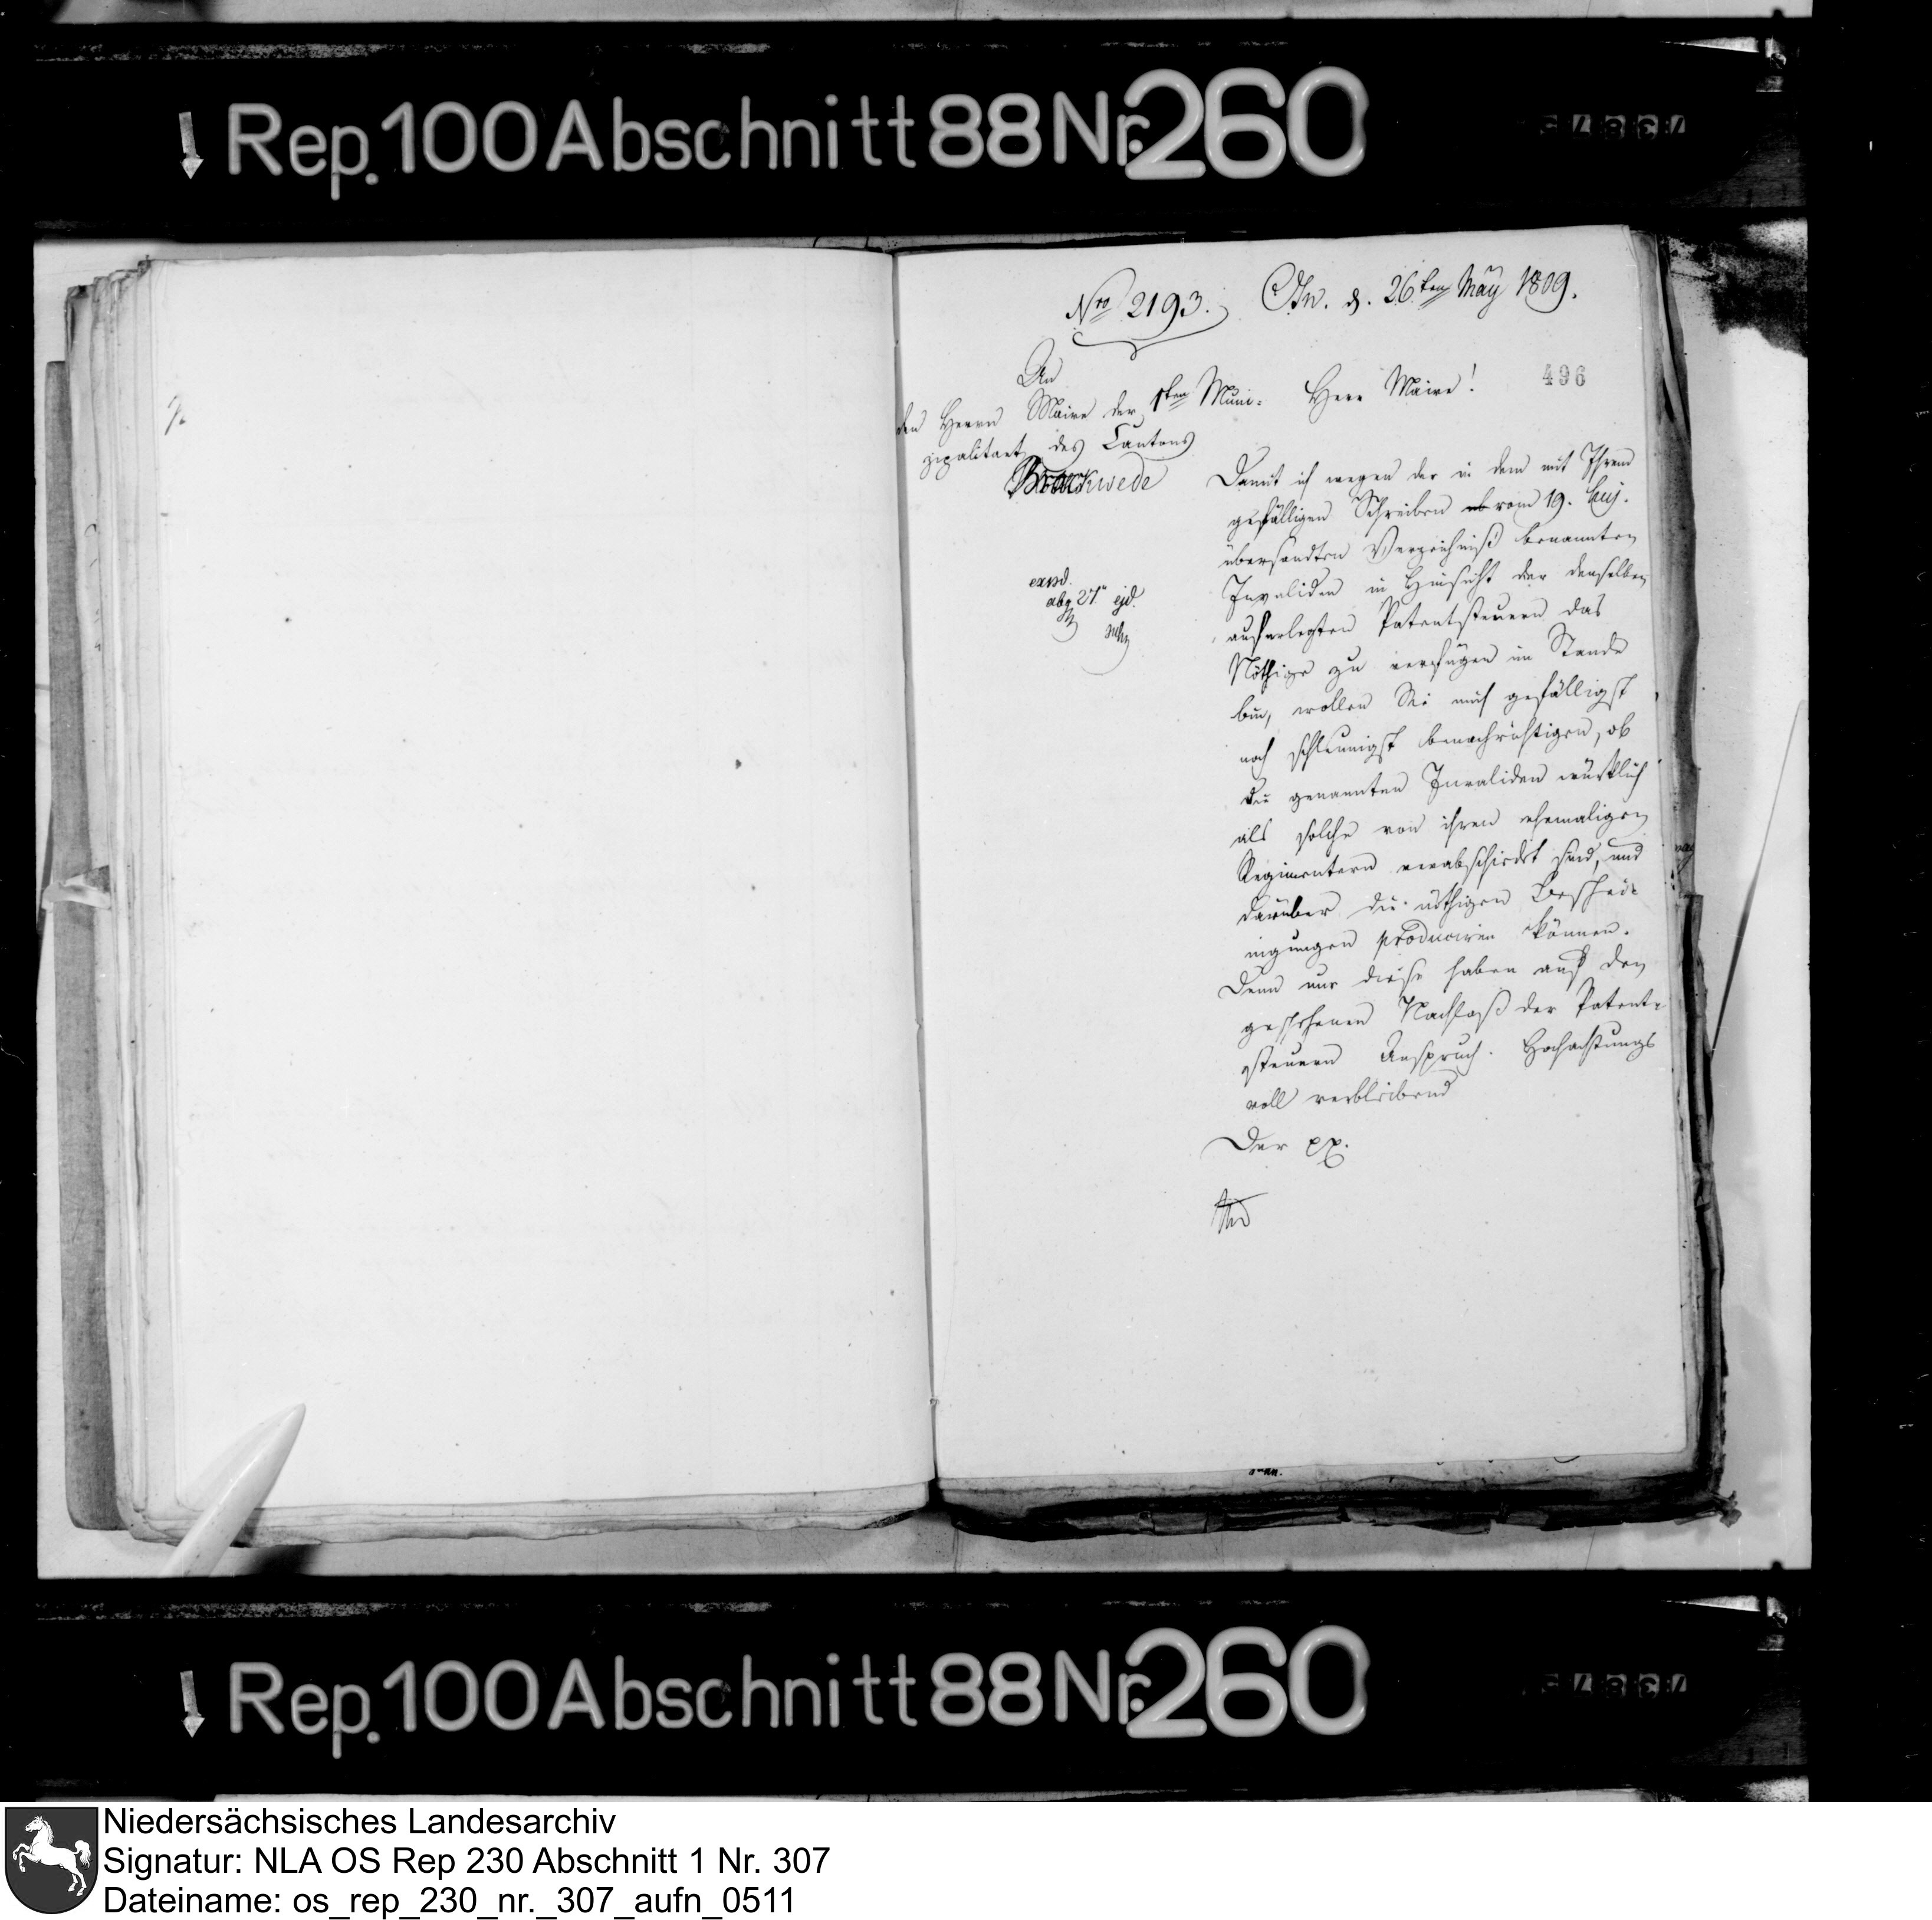 Rep. 100 Abschnitt 88 Nr. 260
Nro 2193. Osn. d. 26ten May 1809.
496
An
den Herrn Maire der 1ten Muni-
zipalitaet des Cantons
Brackwede
expd.
abg 27t ejd.
Herr Maire!
Damit ich wegen der in dem mit Ihrem
gefälligen Schreiben vom 19. huj.
übersandten Verzeichniß benannten
Invaliden in Hinsicht der denselben
auferlegten Patentsteuern das
Nöthige zu verfügen im Stande
bin, wollen Sie mich gefälligst
noch schleunigst benachrichtigen, ob
die genannten Invaliden würklich
als solche von ihren ehemaligen
Regimentern verabschiedet sind, und
darüber die nöthigen Beschei-
nigungen produciren können.
Denn nur diese haben auf den
geschehenen Nachlaß der Patent-
steuern Anspruch. Hochachtungs
voll verbleibend
Der pp.
Rep. 100 Abschnitt 88 Nr. 260
Niedersächsisches Landesarchiv
Signatur: NLA OS Rep 230 Abschnitt 1 Nr. 307
Dateiname: os_rep_230_nr._307_aufn_0511